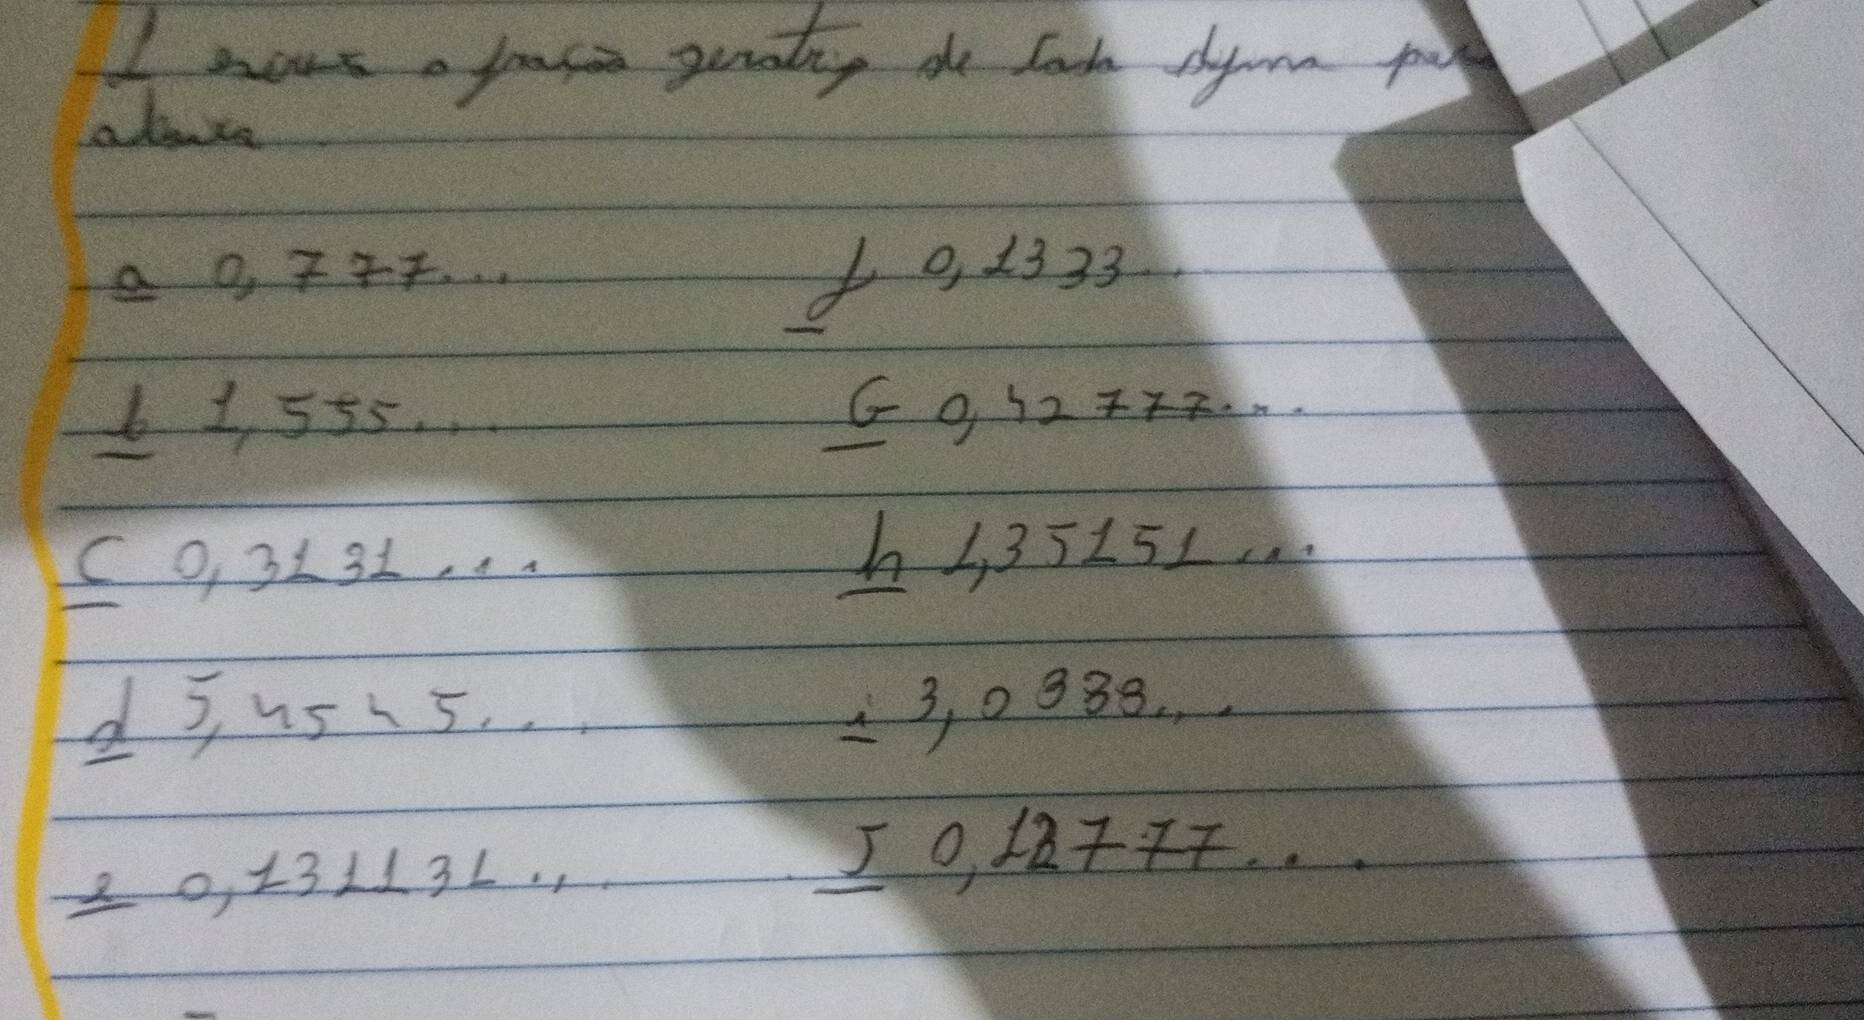 1 escreva a fração geratriz de cada dizima
abaixo
a 0,777...
b 1,555...
c 0,3131...
d 5,4545...
e 0,131131...
f 0,1333...
G 0,42777...
h 1,35151...
i 3,0888...
J 0,12777...